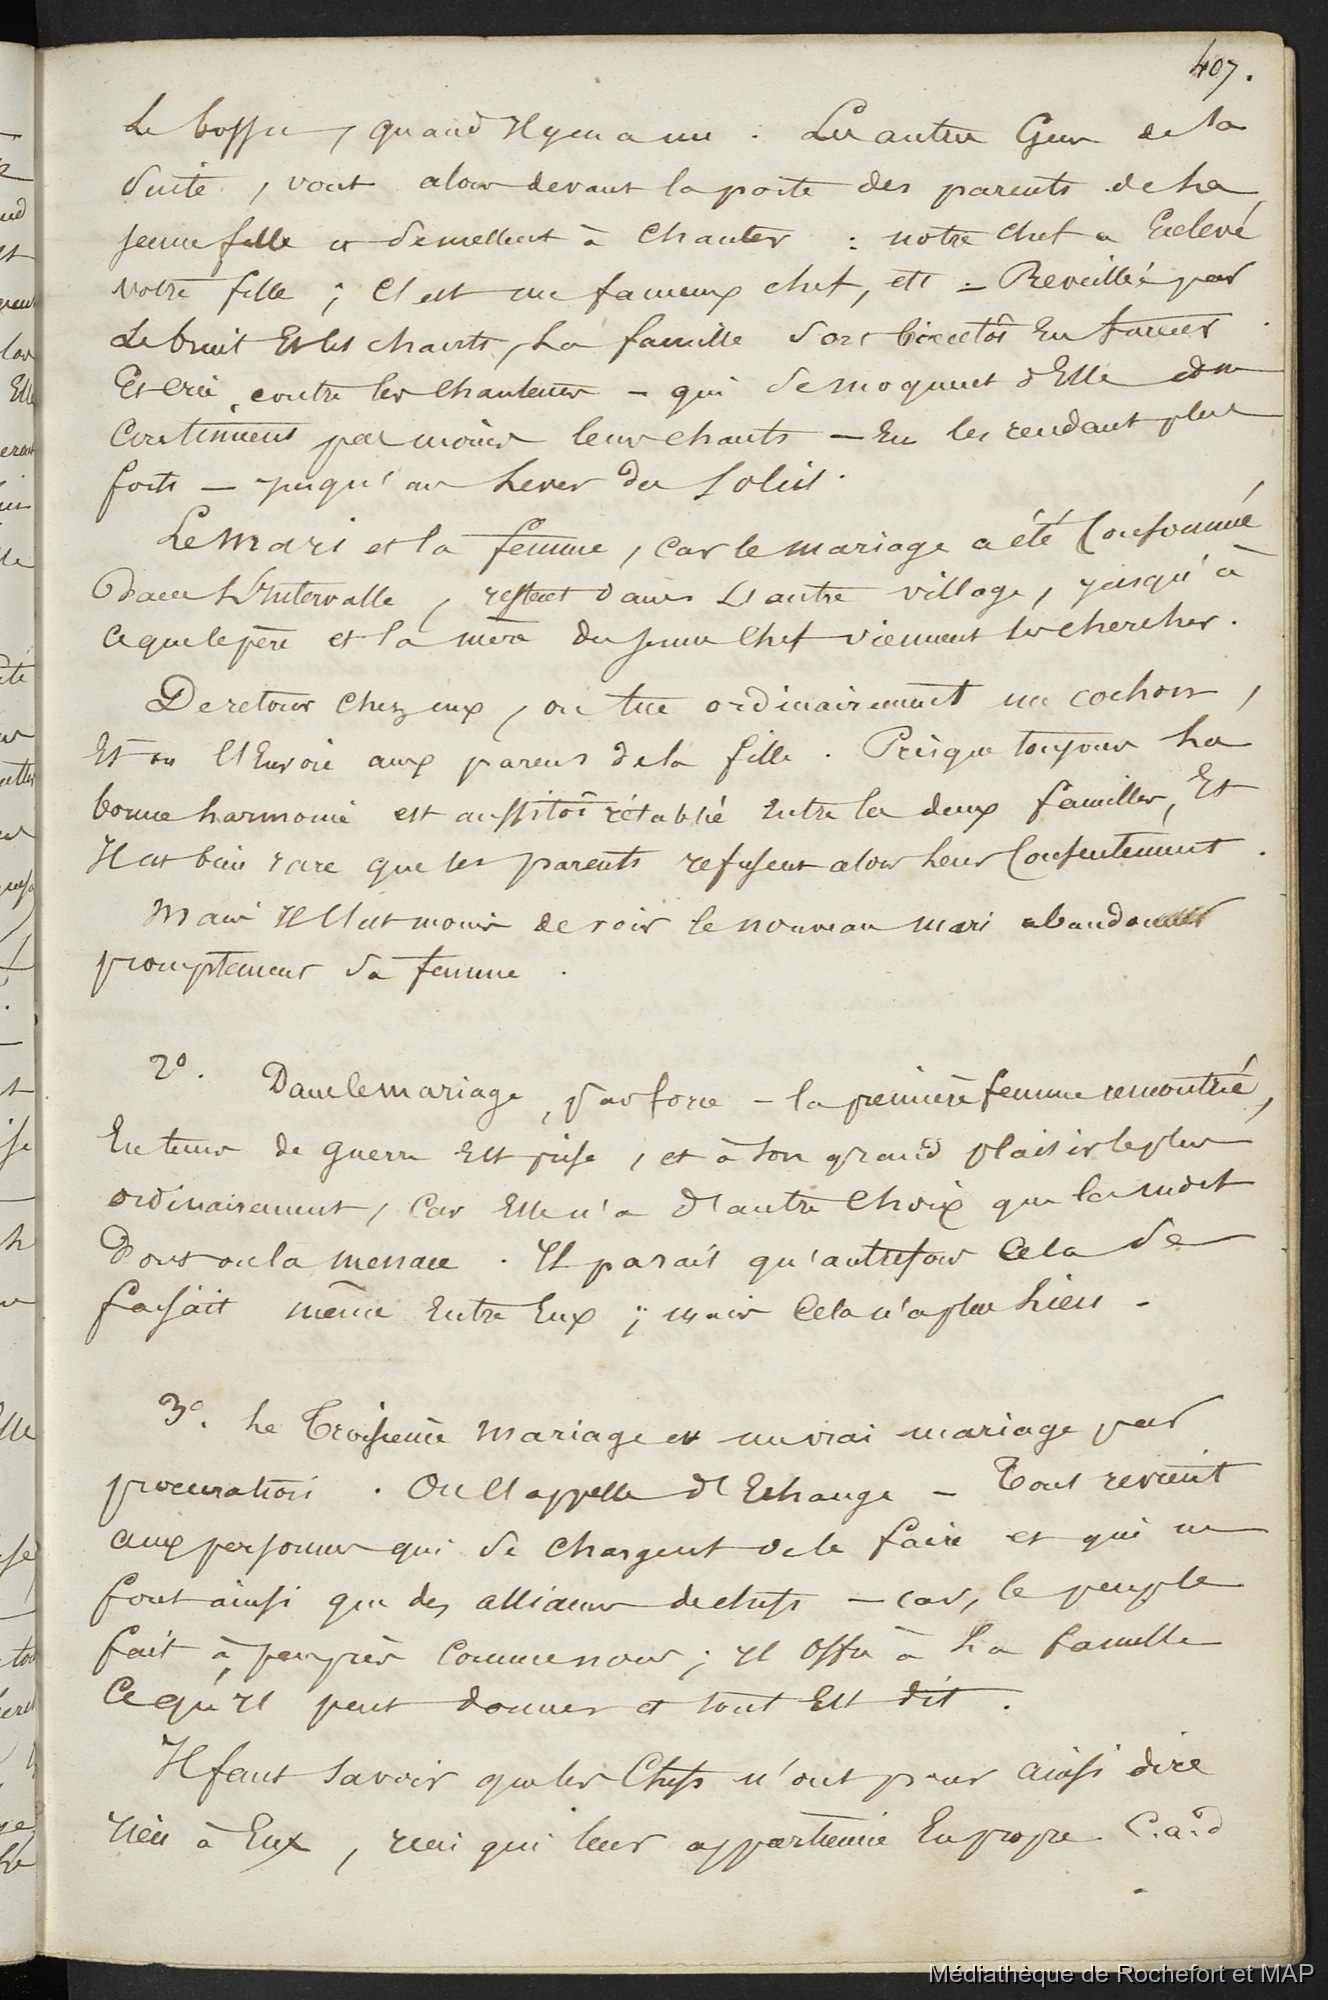 407.
Le bossu, quand Il y en a un. Les autres Gens de la
Suite, vont alors devant la porte des parents de La
jeune fille et Se mettent à Chanter : notre Chef a Enlevé
votre fille ; C'est un fameux chef, etc = Reveillée par
Le bruit Et les chants, La famille Sort bientôt En fureur
Et Crie contre les Chanteurs - qui Se moquent d'Elle et n'en
Continuent pas moins leurs chants — En les rendant plus
forts — jusqu'au Lever du Soleil.
Le Mari et la femme, car le mariage a été Consommé
Dans L'Intervalle, restent dans L'autre village, jusqu'à
Ce que le père et la mère du jeune Chef viennent les chercher.
De retour Chez eux, on tue ordinairement un cochon,
Et on l'Envoie aux parens de la fille. Presque toujours La
bonne harmonie est aussitôt rétablie Entre les deux familles, Et
Il est bien rare que les parents refusent alors Leur Consentement.
Mais Il l'est moins de voir le nouveau mari abandonner
promptement Sa femme.
2º. Dans le mariage, par force - la première femme rencontrée,
En tems de guerre Est prise, et à Son grand plaisir le plus
ordinairement, Car Elle n'a d'autre Choix que la mort
Dont on la menace. Il parait qu'autrefois Cela Se
faisait même Entre Eux ; mais Cela n'a plus Lieu -
3º. Le Troisième Mariage est un vrai mariage par
procuration. On l'appelle d'Echange - Tout revient
aux personnes qui Se Chargent de le faire et qui ne
font ainsi que des alliances de chefs - car, le peuple
fait à peu près Comme nous ; Il Offre à La famille
Ce qu'Il peut donner et tout Est dit.
Il faut Savoir que les Chefs n'ont pour ainsi dire
rien à Eux, rien qui leur appartienne En propre. C.a.d
Médiathèque de Rochefort et MAP